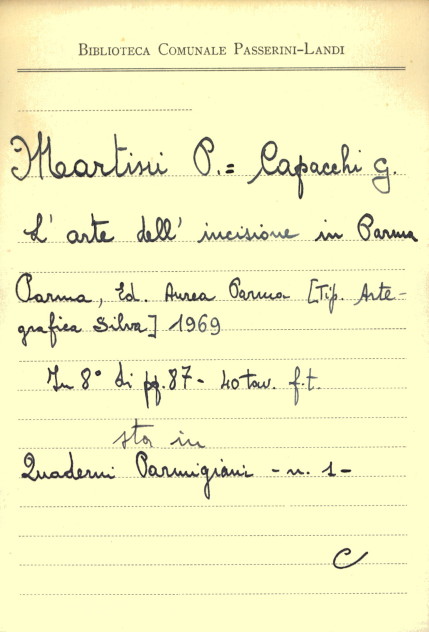 BIBLIOTECA COMUNALE PASSERINI-LANDI
Martini P. = Capacchi G.
L' arte dell' incisione in Parma
Parma, Ed. Aurea Parma [Tip. Arte-
grafica Silva] 1969
In 8° di pp. 87 - 40 tav. f.t.
sta in
Quaderni Parmigiani - n. 1 -
C